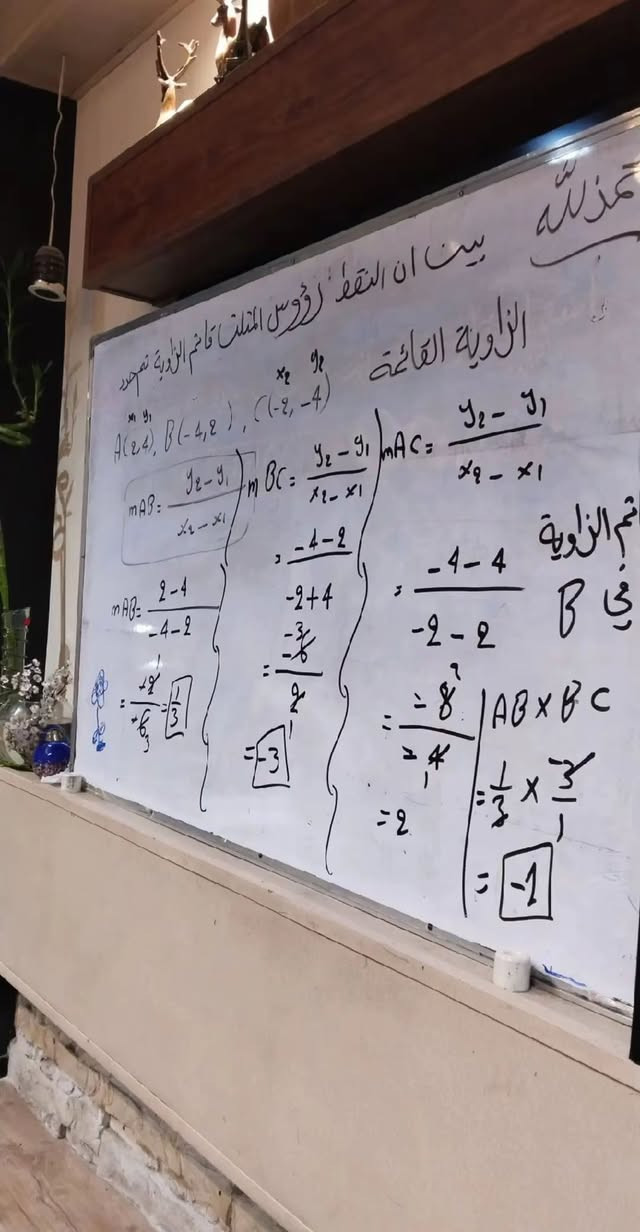 الحمد لله
بين ان النقط رؤوس المثلث قائم الزاوية ثم حدد
الزاوية القائمة
x₁ y₁ x₂ y₂
A(2,4), B(-4,2), C(-2,-4)
mAB= y₂-y₁ / x₂-x₁
mAB= 2-4 / -4-2
= -2 / -6 = 1/3
mBC= y₂-y₁ / x₂-x₁
= -4-2 / -2+4
= -6 / 2
= -3
mAC= y₂-y₁ / x₂-x₁
= -4-4 / -2-2
= -8 / -4
= 2
قائم الزاوية
في B
AB×BC
= 1/3 × -3/1
= -1